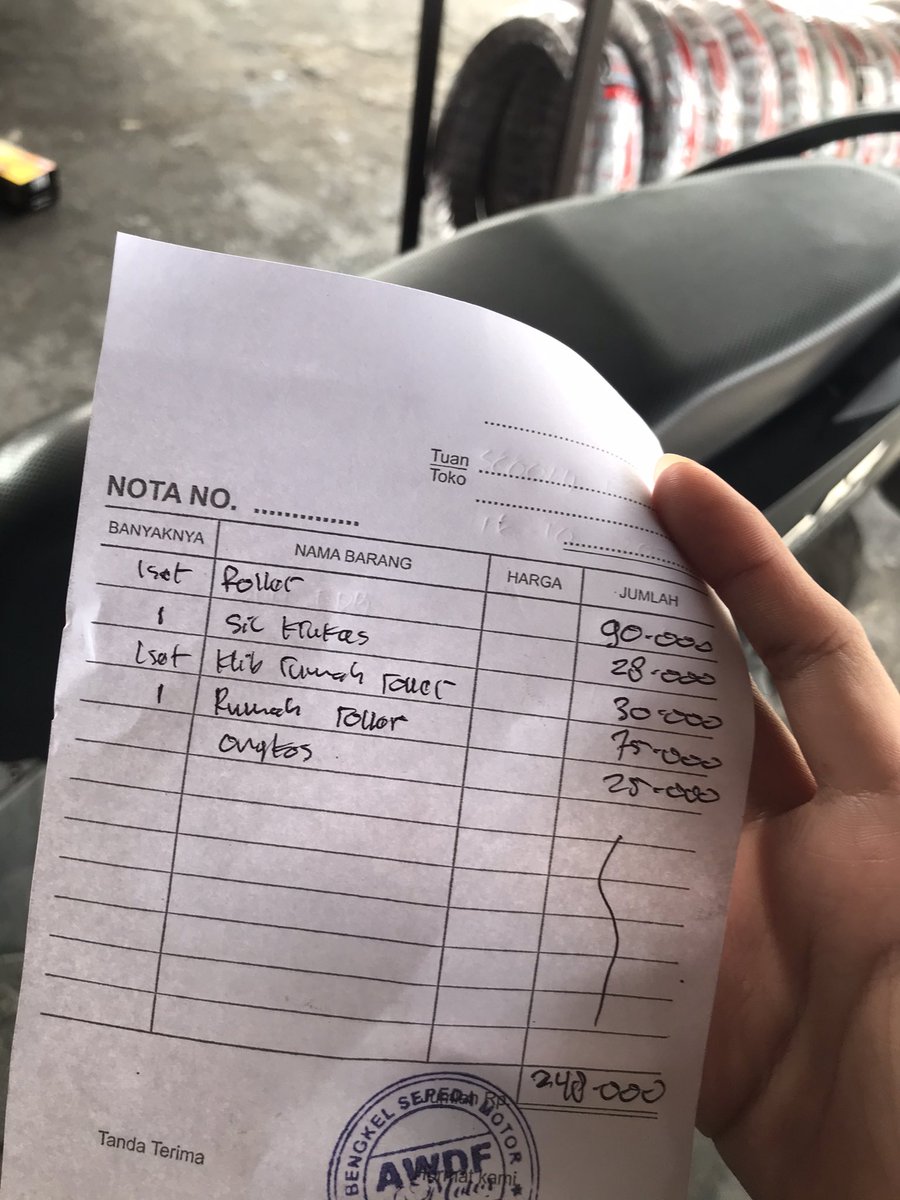 Tuan
Toko
NOTA NO. ..............
BANYAKNYA NAMA BARANG HARGA JUMLAH
1set Roller 90.000
1 Sil krukas 28.000
1set Klib rumah roller 30.000
1 Rumah roller 75.000
Ongkos 25.000
248.000
Jumlah Rp.
Tanda Terima
Hormat kami
BENGKEL SEPEDA MOTOR
AWDF